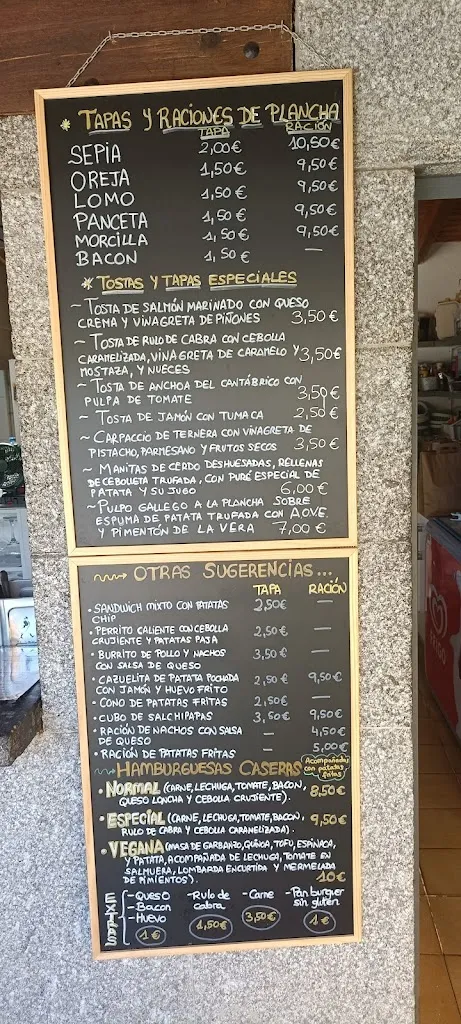 * TAPAS Y RACIONES DE PLANCHA
TAPA RACIÓN
SEPIA 2,00€ 10,50€
OREJA 1,50€ 9,50€
LOMO 1,50€ 9,50€
PANCETA 1,50€ 9,50€
MORCILLA 1,50€ 9,50€
BACON 1,50€ —
* TOSTAS Y TAPAS ESPECIALES
~ TOSTA DE SALMÓN MARINADO CON QUESO
CREMA Y VINAGRETA DE PIÑONES 3,50€
~ TOSTA DE RULO DE CABRA CON CEBOLLA
CARAMELIZADA, VINAGRETA DE CARAMELO Y 3,50€
MOSTAZA, Y NUECES
~ TOSTA DE ANCHOA DEL CANTÁBRICO CON
PULPA DE TOMATE 3,50€
~ TOSTA DE JAMÓN CON TUMACA 2,50€
~ CARPACCIO DE TERNERA CON VINAGRETA DE
PISTACHO, PARMESANO Y FRUTOS SECOS 3,50€
~ MANITAS DE CERDO DESHUESADAS, RELLENAS
DE CEBOLLETA TRUFADA, CON PURÉ ESPECIAL DE
PATATA Y SU JUGO 6,00€
~ PULPO GALLEGO A LA PLANCHA SOBRE
ESPUMA DE PATATA TRUFADA CON AOVE
Y PIMENTÓN DE LA VERA 7,00€
OTRAS SUGERENCIAS...
TAPA RACIÓN
• SANDWICH MIXTO CON PATATAS 2,50€ —
CHIP
• PERRITO CALIENTE CON CEBOLLA 2,50€ —
CRUJIENTE Y PATATAS PAJA
• BURRITO DE POLLO Y NACHOS 3,50€ —
CON SALSA DE QUESO
• CAZUELITA DE PATATA POCHADA 2,50€ 9,50€
CON JAMÓN Y HUEVO FRITO
• CONO DE PATATAS FRITAS 2,50€ —
• CUBO DE SALCHIPAPAS 3,50€ 9,50€
• RACIÓN DE NACHOS CON SALSA — 4,50€
DE QUESO
• RACIÓN DE PATATAS FRITAS — 5,00€
HAMBURGUESAS CASERAS Acompañadas
con patatas
fritas
• NORMAL (CARNE, LECHUGA, TOMATE, BACON, 8,50€
QUESO LONCHA Y CEBOLLA CRUJIENTE).
• ESPECIAL (CARNE, LECHUGA, TOMATE, BACON, 9,50€
RULO DE CABRA Y CEBOLLA CARAMELIZADA).
• VEGANA (MASA DE GARBANZO, QUINOA, TOFU, ESPINACA,
Y PATATA, ACOMPAÑADA DE LECHUGA, TOMATE EN
SALMUERA, LOMBARDA ENCURTIDA Y MERMELADA
DE PIMIENTOS). 10€
EXTRAS
- Queso - Rulo de - Carne - Pan burger
- Bacon cabra sin gluten
- Huevo
1€ 1,50€ 3,50€ 1€